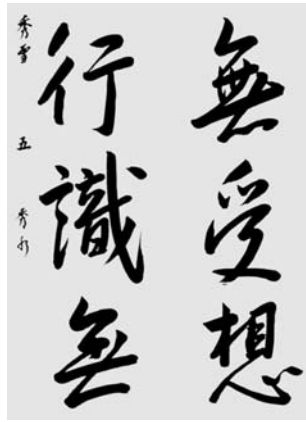 無受想
行識無
秀雪 五 秀水